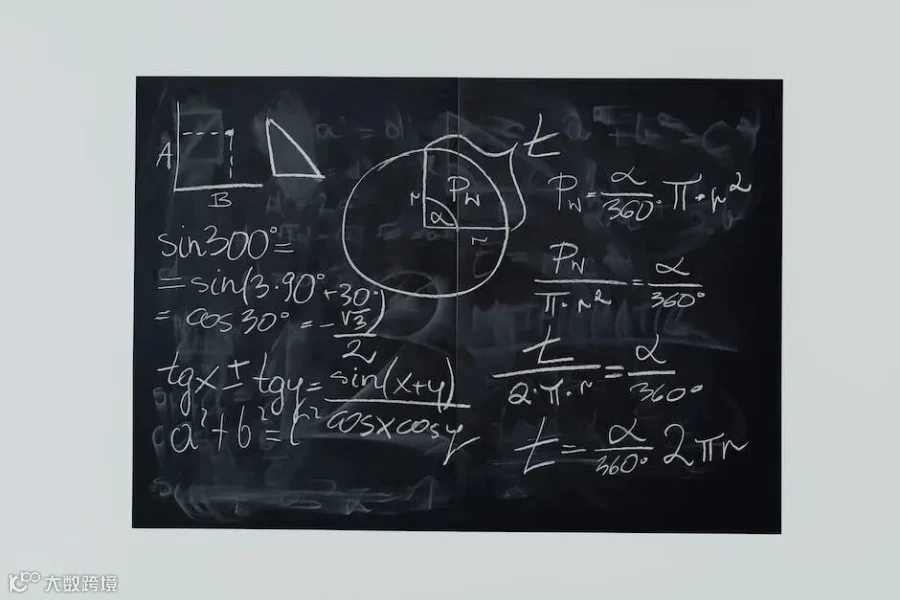 A
B
sin300°=
=sin(3·90°+30°)
= cos30° = -√3/2
tgx ± tgy = sin(x+y)/cosxcosy
a²+b²=c²
t
P_w
r
α
r
P_w = α/360° π·r²
P_w/π·r² = α/360°
t/2·π·r = α/360°
t = α/360° 2πr
大数跨境